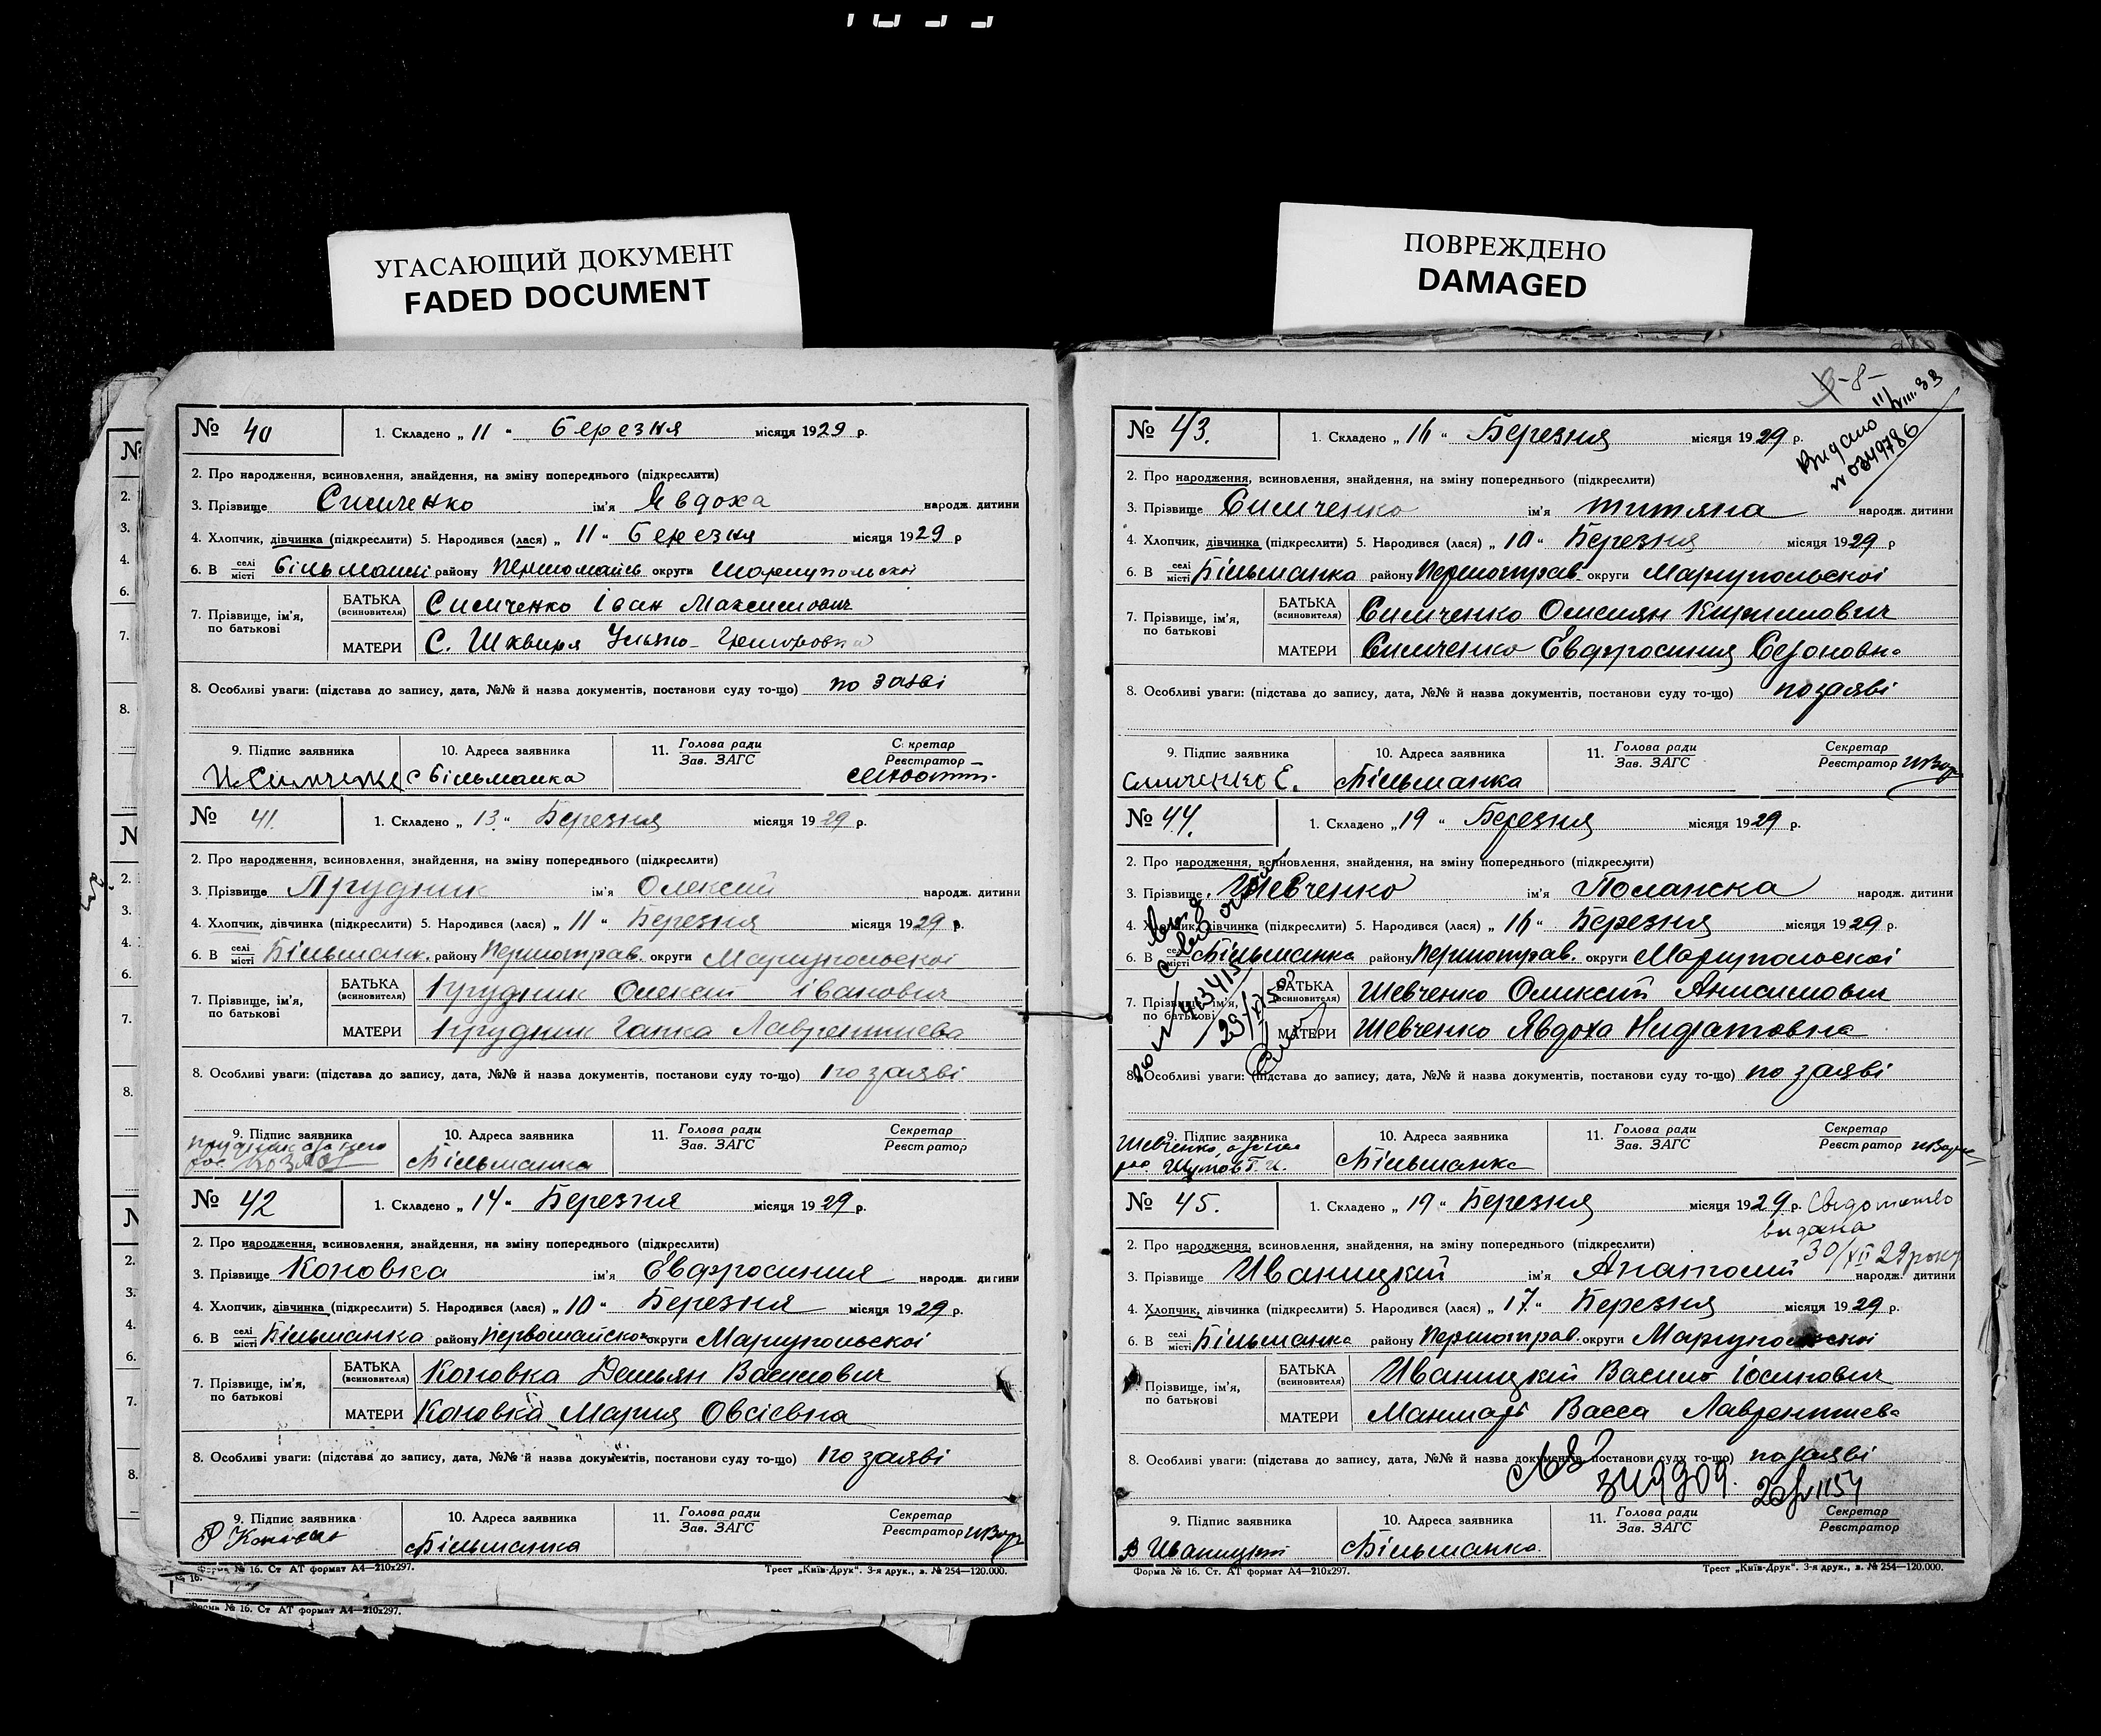 УГАСАЮЩИЙ ДОКУМЕНТ
FADED DOCUMENT
ПОВРЕЖДЕНО
DAMAGED
№ 40 1. Складено „ 11 “ березня місяця 1929 р.
2. Про народження, всиновлення, знайдення, на зміну попереднього (підкреслити)
3. Прізвище Симченко ім'я Явдоха народж. дитини
4. Хлопчик, дівчинка (підкреслити) 5. Народився (лася) „ 11 “ березня місяця 1929 р
6. В селі місті більманкі району Першомайсь округи Маріупольскоі
7. Прізвище, ім'я, по батькові
БАТЬКА (всиновителя) Симченко Іван Максимович
МАТЕРИ С. Шквиря Ульяна
8. Особливі уваги: (підстава до запису, дата, №№ й назва документів, постанови суду то-що) по заяві
9. Підпис заявника 10. Адреса заявника 11. Голова ради Зав. ЗАГС Секретар Реєстратор
И Симченко с Більманка
№ 41. 1. Складено „ 13. “ Березня місяця 1929 р.
2. Про народження, всиновлення, знайдення, на зміну попереднього (підкреслити)
3. Прізвище Прудник ім'я Олексій народж. дитини
4. Хлопчик, дівчинка (підкреслити) 5. Народився (лася) „ 11 “ Березня місяця 1929 р.
6. В селі місті Більманк. району Першотрав. округи Маріупольскоі
7. Прізвище, ім'я, по батькові
БАТЬКА (всиновителя) Прудник Олексій Іванович
МАТЕРИ Прудник Гапка Лаврентиева
8. Особливі уваги: (підстава до запису, дата, №№ й назва документів, постанови суду то-що) по заяві
9. Підпис заявника 10. Адреса заявника 11. Голова ради Зав. ЗАГС Секретар Реєстратор
Прудник за него с Більманка
№ 42 1. Складено „ 14 “ Березня місяця 1929 р.
2. Про народження, всиновлення, знайдення, на зміну попереднього (підкреслити)
3. Прізвище Коновка ім'я Євфросиния народж. дитини
4. Хлопчик, дівчинка (підкреслити) 5. Народився (лася) „ 10 “ Березня місяця 1929 р.
6. В селі місті Більманка району Первомайскою округи Маріупольскоі
7. Прізвище, ім'я, по батькові
БАТЬКА (всиновителя) Коновка Демьян Васильович
МАТЕРИ Коновка Мария Овсієвна
8. Особливі уваги: (підстава до запису, дата, №№ й назва документів, постанови суду то-що) по заяві
9. Підпис заявника 10. Адреса заявника 11. Голова ради Зав. ЗАГС Секретар Реєстратор
с Більманка
Форма № 16. Ст АТ формат А4—210х297. Трест „Київ-Друк“. 3-я друк., в. № 254—120.000.
Форма № 16. Ст АТ формат А4—210х297.
-8-
Видано 11/VIII.33
№ 0349786
№ 43. 1. Складено „ 16 “ Березня місяця 1929 р.
2. Про народження, всиновлення, знайдення, на зміну попереднього (підкреслити)
3. Прізвище Симченко ім'я Титяна народж. дитини
4. Хлопчик, дівчинка (підкреслити) 5. Народився (лася) „ 10 “ Березня місяця 1929 р
6. В селі місті Більманка району Першотрав. округи Маріупольскоі
7. Прізвище, ім'я, по батькові
БАТЬКА (всиновителя) Симченко Омелян Кирилович
МАТЕРИ Симченко Євфросиния
8. Особливі уваги: (підстава до запису, дата, №№ й назва документів, постанови суду то-що) по заяві
9. Підпис заявника 10. Адреса заявника 11. Голова ради Зав. ЗАГС Секретар Реєстратор
Симченко Е. с Більманка
№ 44. 1. Складено „ 19 “ Березня місяця 1929 р.
2. Про народження, всиновлення, знайдення, на зміну попереднього (підкреслити)
3. Прізвище Шевченко ім'я Помаиска народж. дитини
4. Хлопчик, дівчинка (підкреслити) 5. Народився (лася) „ 16 “ Березня місяця 1929 р.
6. В селі місті с Більманка району Першотрав. округи Маріупольскоі
7. Прізвище, ім'я, по батькові
БАТЬКА (всиновителя) Шевченко Олексій Анисимович
МАТЕРИ Шевченко Явдоха
8. Особливі уваги: (підстава до запису, дата, №№ й назва документів, постанови суду то-що) по заяві
9. Підпис заявника 10. Адреса заявника 11. Голова ради Зав. ЗАГС Секретар Реєстратор
Шевченко с Більманка
№ 45. 1. Складено „ 19 “ Березня місяця 1929 р. Свидотство
видана
30/XII 29 року
2. Про народження, всиновлення, знайдення, на зміну попереднього (підкреслити)
3. Прізвище Иваницкий ім'я Анатолий народж. дитини
4. Хлопчик, дівчинка (підкреслити) 5. Народився (лася) „ 17. “ Березня місяця 1929 р.
6. В селі місті Більманка району Першотрав. округи Маріупольскоі
7. Прізвище, ім'я, по батькові
БАТЬКА (всиновителя) Иваницкий Василь Іосипович
МАТЕРИ Васса Лаврентиева
8. Особливі уваги: (підстава до запису, дата, №№ й назва документів, постанови суду то-що) по заяві
349909.
9. Підпис заявника 10. Адреса заявника 11. Голова ради Зав. ЗАГС Секретар Реєстратор
В Иваницкий с Більманка.
Форма № 16. Ст. АТ формат А4—210х297. Трест „Київ-Друк“. 3-я друк., в. № 254—120.000.